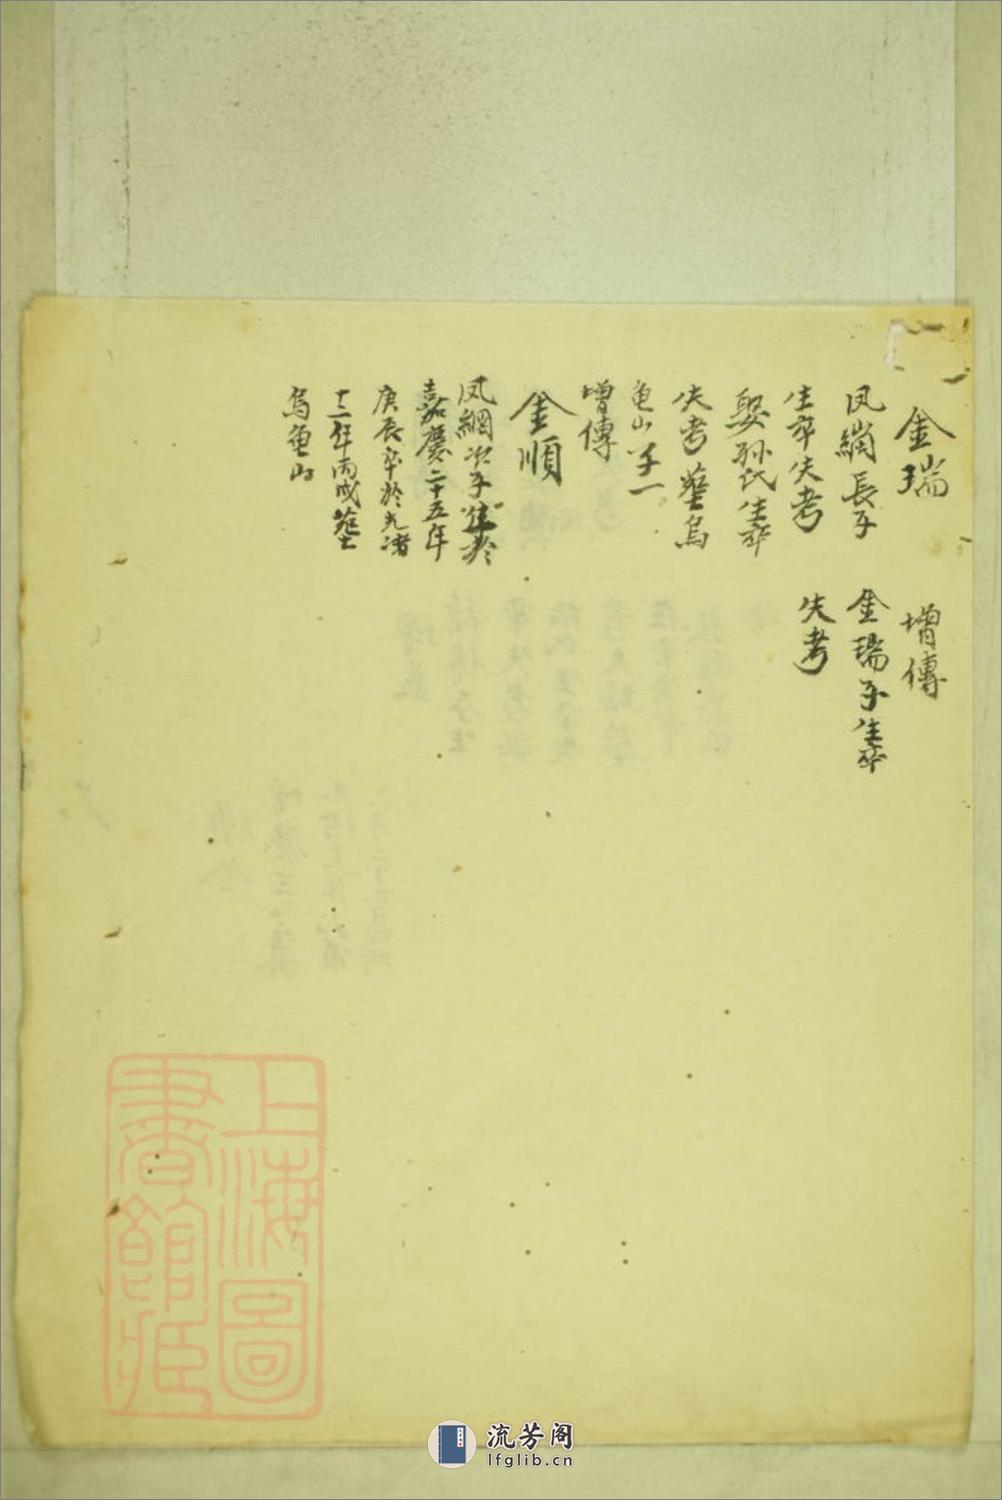 金瑞
凤綱長子
生卒失考
娶孙氏生卒
失考 葬烏
龟山 子一
增傳
金順
凤綱次子生於
嘉慶二十五年
庚辰卒於光渚
十二年丙戌葬
烏龟山
增傳
金瑞子生卒
失考
上海圖
書館藏
流芳阁
lfglib.cn